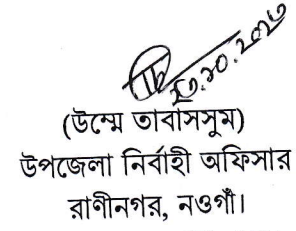 ২৩.১০.২০২৩
(উম্মে তাবাসসুম)
উপজেলা নির্বাহী অফিসার
রাণীনগর, নওগাঁ।